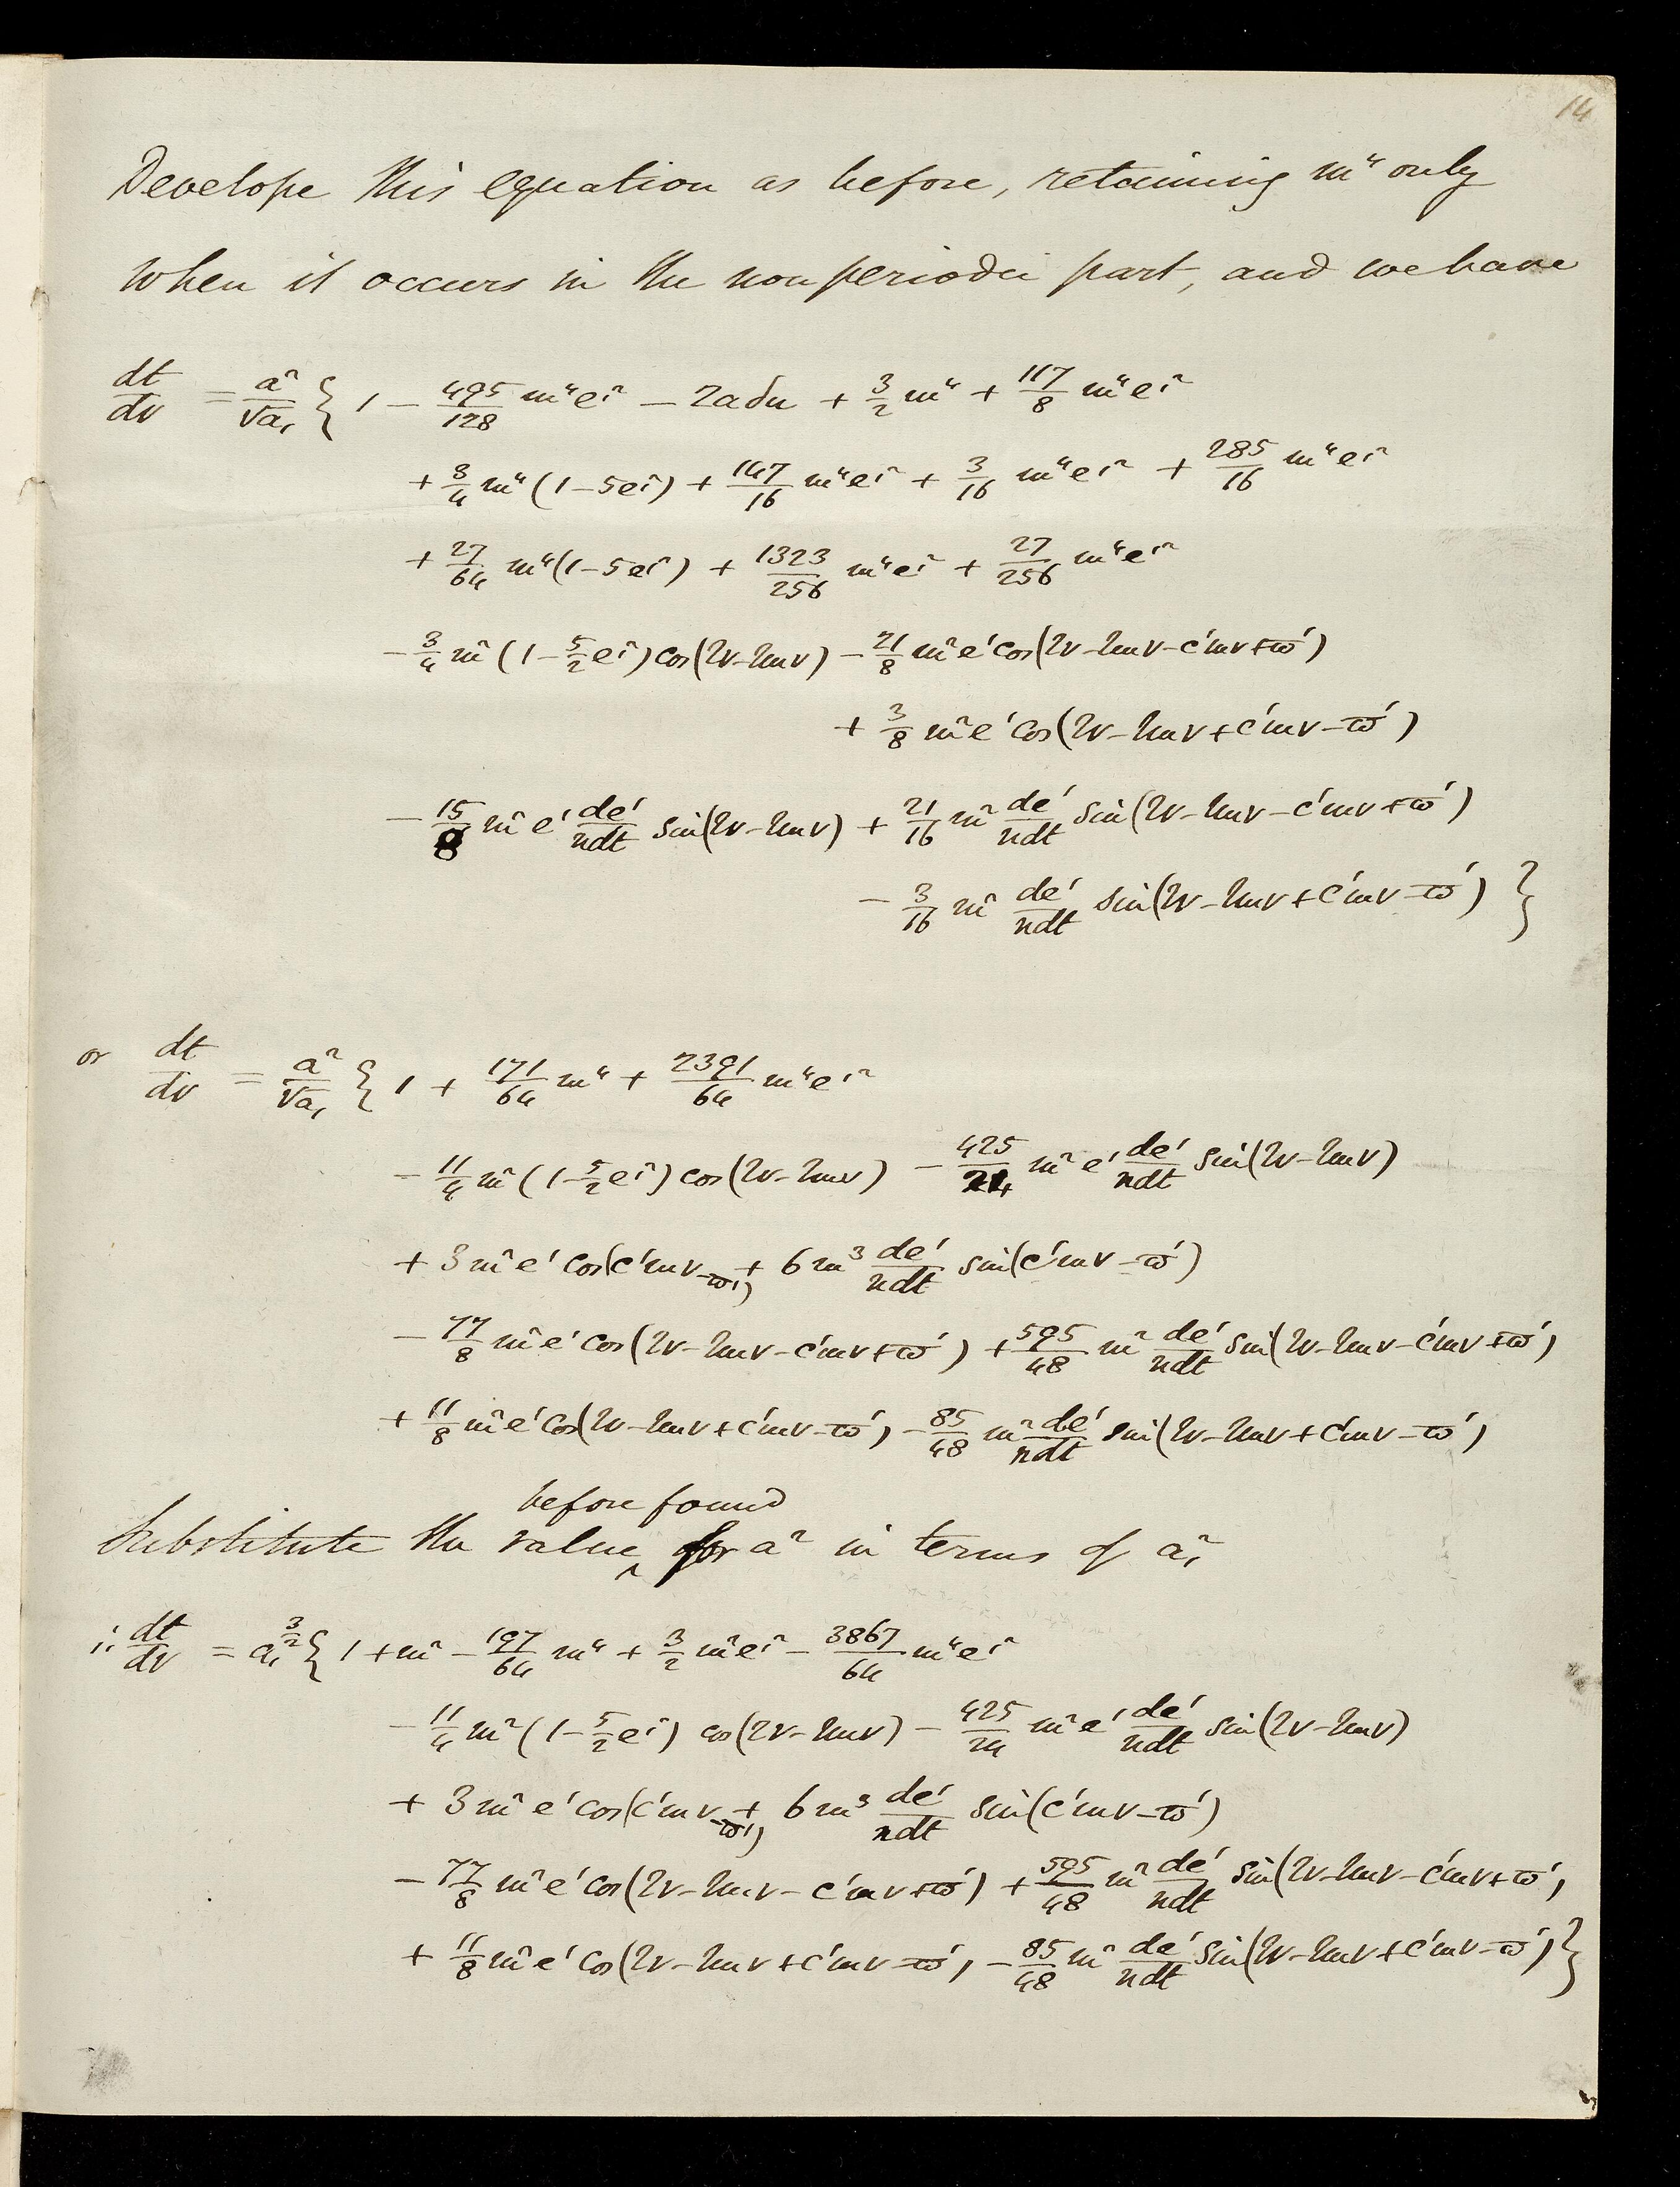 14
Develope this equation as before, retaining m⁴ only
when it occurs in the non periodic part, and we have
dt/dν = a²/√a, { 1 − 495/128 m⁴e'² − 2aδu + 3/2 m⁴ + 117/8 m⁴e'²
+ 3/4 m⁴(1−5e'²) + 147/16 m⁴e'² + 3/16 m⁴e'² + 285/16 m⁴e'²
+ 27/64 m⁴(1−5e'²) + 1323/256 m⁴e'² + 27/256 m⁴e'²
− 3/4 m²(1−5/2 e'²) cos(2ν−2mν) − 21/8 m²e' cos(2ν−2mν−c'mν+ϖ')
+ 3/8 m²e' cos(2ν−2mν+c'mν−ϖ')
− 15/8 m²e' de'/ndt sin(2ν−2mν) + 21/16 m² de'/ndt sin(2ν−2mν−c'mν+ϖ')
− 3/16 m² de'/ndt sin(2ν−2mν+c'mν−ϖ') }
or dt/dν = a²/√a, { 1 + 171/64 m⁴ + 2391/64 m⁴e'²
− 11/4 m²(1−5/2 e'²) cos(2ν−2mν) − 425/24 m²e' de'/ndt sin(2ν−2mν)
+ 3m²e' cos(c'mν−ϖ') + 6m³ de'/ndt sin(c'mν−ϖ')
− 77/8 m²e' cos(2ν−2mν−c'mν+ϖ') + 595/48 m² de'/ndt sin(2ν−2mν−c'mν+ϖ')
+ 11/8 m²e' cos(2ν−2mν+c'mν−ϖ') − 85/48 m² de'/ndt sin(2ν−2mν+c'mν−ϖ')
before found
Substitute the value ‸ for a² in terms of a,²
∴ dt/dν = a,^3/2 { 1 + m² − 197/64 m⁴ + 3/2 m²e'² − 3867/64 m⁴e'²
− 11/4 m²(1−5/2 e'²) cos(2ν−2mν) − 425/24 m²e' de'/ndt sin(2ν−2mν)
+ 3m²e' cos(c'mν−ϖ') + 6m³ de'/ndt sin(c'mν−ϖ')
− 77/8 m²e' cos(2ν−2mν−c'mν+ϖ') + 595/48 m² de'/ndt sin(2ν−2mν−c'mν+ϖ')
+ 11/8 m²e' cos(2ν−2mν+c'mν−ϖ') − 85/48 m² de'/ndt sin(2ν−2mν+c'mν−ϖ') }